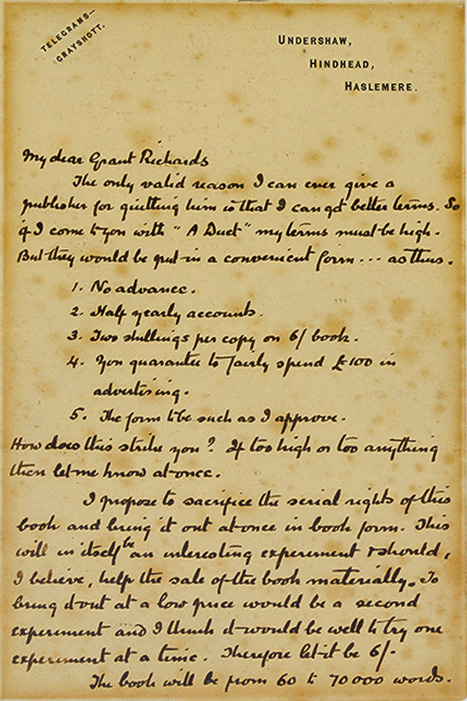 TELEGRAMS—
GRAYSHOTT.
UNDERSHAW,
HINDHEAD,
HASLEMERE.
My dear Grant Richards
The only valid reason I can ever give a
publisher for quitting him is that I can get better terms. So
if I come to you with "A Duet" my terms must be high.
But they would be put in a convenient form --- as thus.
1. No advance.
2. Half yearly accounts.
3. Two shillings per copy on 6/ book.
4. You guarantee to fairly spend £100 in
advertising.
5. The form to be such as I approve.
How does this strike you? If too high or too anything
then let me know at once.
I propose to sacrifice the serial rights of this
book and bring it out at once in book form. This
will in itself be an interesting experiment & should,
I believe, help the sale of the book materially. To
bring it out at a low price would be a second
experiment and I think it would be well to try one
experiment at a time. Therefore let it be 6/-
The book will be from 60 to 70000 words.